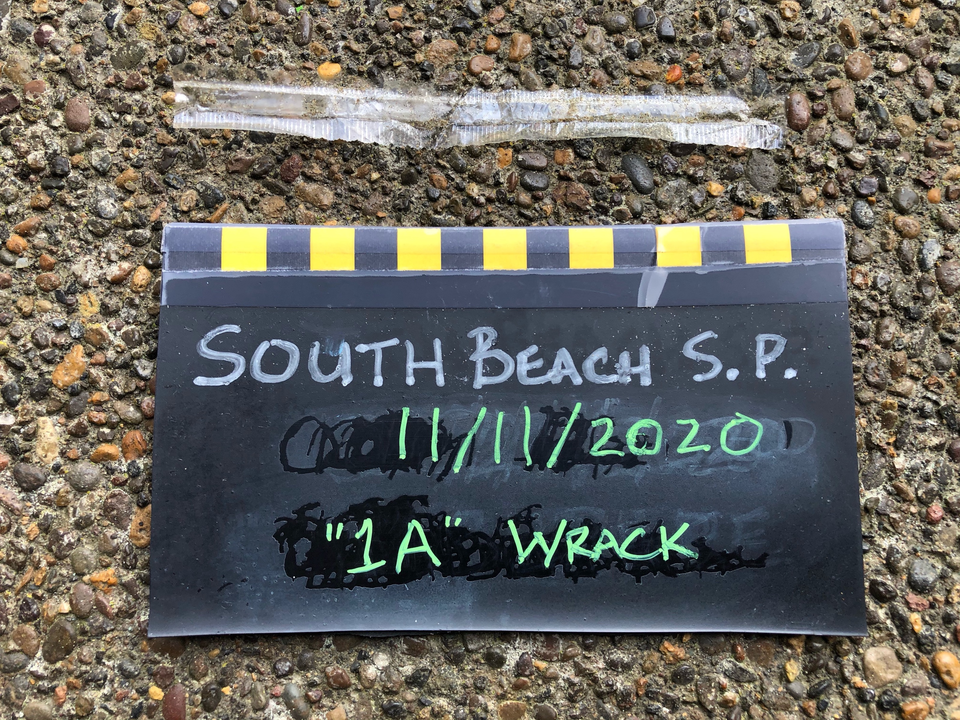 SOUTH BEACH S.P.
11/11/2020
"1A" WRACK